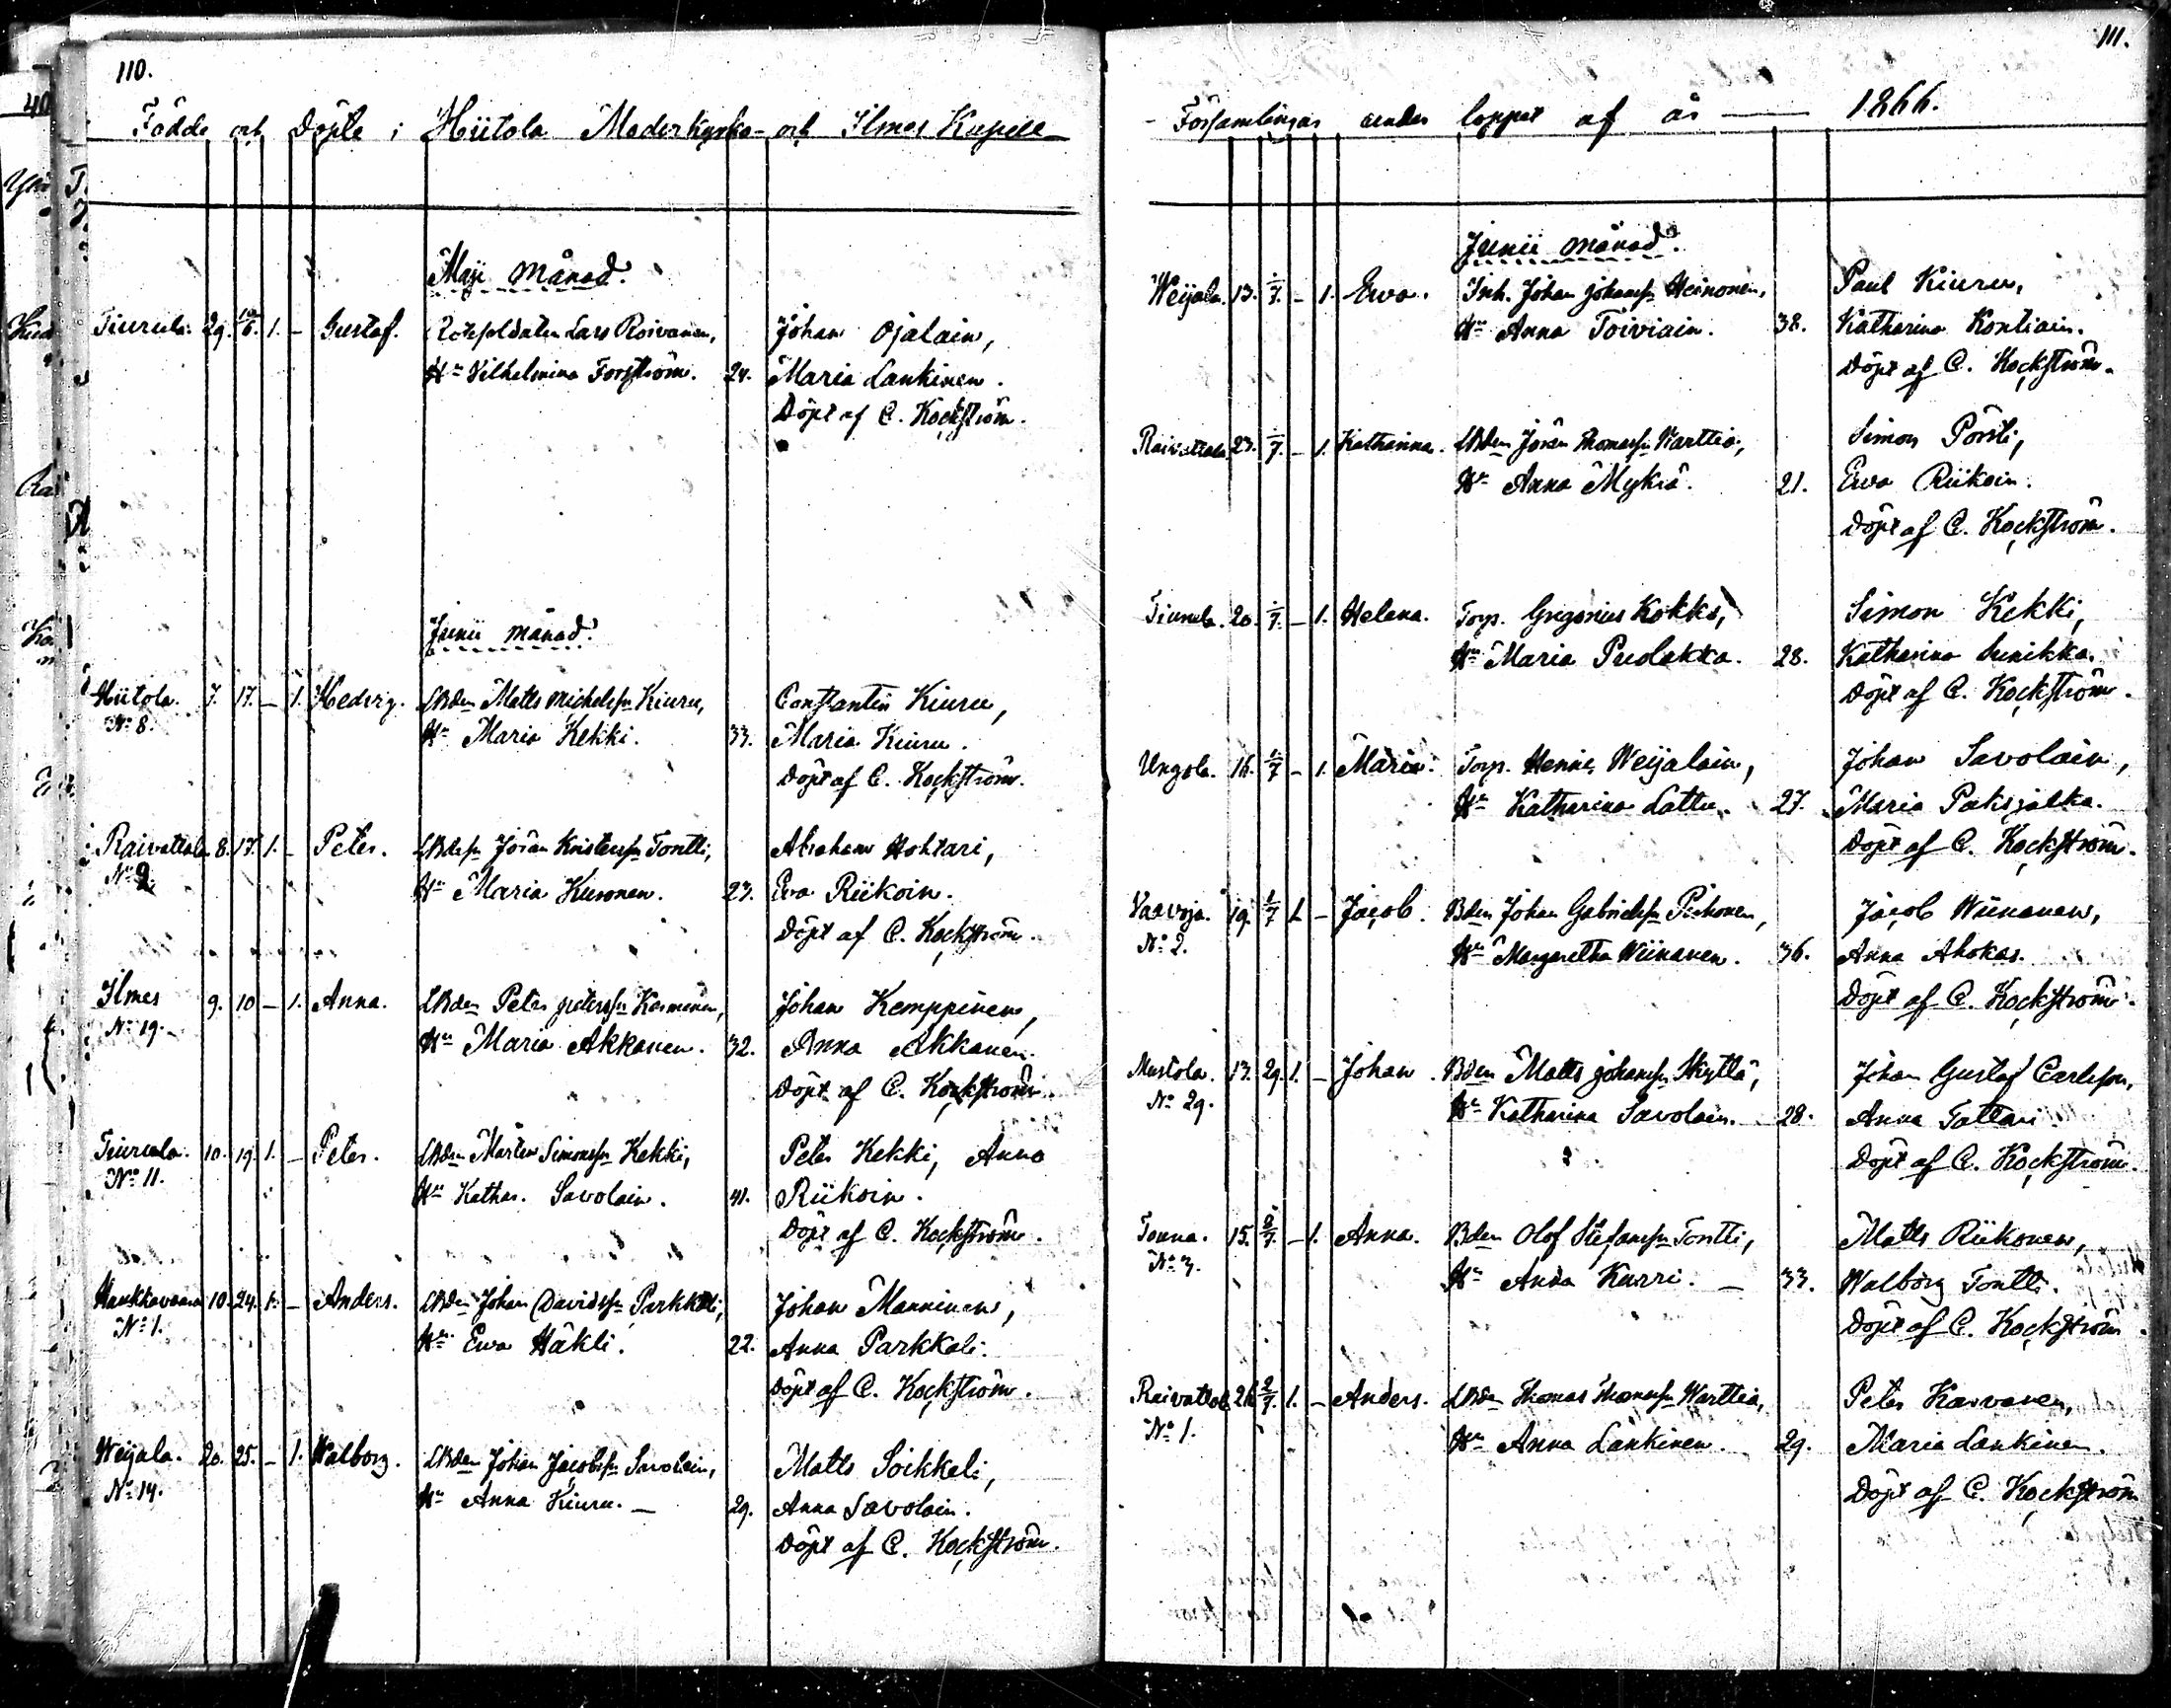 110.
Födde och Döpte i Hiitola Moderkyrko- och Ilmes Kapell
Maji månad.
Tiurula. 29. 10/6. 1. - Gustaf. Rotesoldaten Lars Roivanen, Johan Ojalain,
Hu Vilhelmina Forsström. 24. Maria Lankinen.
Döpt af C. Kockström.
Junii månad.
Hiitola. 7. 17. - 1. Hedvig. LBden Matts Michelsson Kiuru, Constantin Kiuru,
No 8. Hu Maria Kekki. 33. Maria Kiuru.
Döpt af C. Kockström.
Raivattala 8. 17. 1. - Peter. LBdesn Jöran Kristersson Tontti, Abraham Hohtari,
No 9. Hu Maria Kuronen. 23. Eva Riikoin.
Döpt af C. Kockström.
Ilmes 9. 10 - 1. Anna. LBden Peter petersson Kosminen, Johan Kemppinen,
No 19. Hu Maria Akkanen. 32. Anna Akkanen.
Döpt af C. Kockström.
Tiurula. 10. 19. 1. - Peter. LBden Mårten Simonsson Kekki, Peter Kekki, Anna
No 11. Hu Kathar. Savolain. 41. Riikoin.
Döpt af C. Kockström.
Haukkavaara 10. 24. 1. - Anders. LBden Johan Davidsson Parkkali, Johan Manninen,
No 1. Hu Ewa Häkli. 22. Anna Parkkali.
Döpt af C. Kockström.
Weijala. 20. 25. - 1. Walborg. LBden Johan Jacobsson Savolain, Matts Soikkeli,
No 14. Hu Anna Kiuru. - 29. Anna Savolain.
Döpt af C. Kockström.
111.
- Församlingar under loppet af år - 1866.
Junii månad.
Weijala. 13. 1/7. - 1. Ewa. Inh. Johan Johansson Heinonen, Paul Kiuru,
Hu Anna Toiviain. 38. Katharina Kontiain.
Döpt af C. Kockström.
Raivattala 23. 1/7. - 1. Katharina. LBden Jöran Thomasson Warttia, Simon Pörsti,
Hu Anna Mykrä. 21. Ewa Riikoin.
Döpt af C. Kockström.
Tiurula. 20. 1/7. - 1. Helena. Torp. Gregorius Kokko, Simon Kekki,
Hu Maria Puolakka. 28. Katharina Sunikka.
Döpt af C. Kockström.
Ungola. 16. 1/7 - 1. Maria. Torp. Henric Weijalain, Johan Savolain,
Hu Katharina Lattu. 27. Maria Paksujalka.
Döpt af C. Kockström.
Vaavoja. 19. 1/7 1. - Jacob. Bden Johan Gabrielsson Peshonen, Jacob Wiinanen,
No 2. Hu Margaretha Wiinanen. 36. Anna Ahokas.
Döpt af C. Kockström.
Mustola. 13. 29. 1. - Johan. Bden Matts Johansson Skyttä, Johan Gustaf Carlsson,
No 29. Hu Katharina Savolain. 28. Anna Tattari
Döpt af C. Kockström.
Tounna. 15. 2/7. - 1. Anna. Bden Olof Stefansson Tontti, Matts Riikonen,
No 3. Hu Anna Kurri. - 33. Walborg Tontti.
Döpt af C. Kockström.
Raivattal 26 2/7. 1. - Anders. LBden Thomas Thomasson Warttia, Peter Karvanen,
No 1. Hu Anna Lankinen. 29. Maria Lankinen.
Döpt af C. Kockström